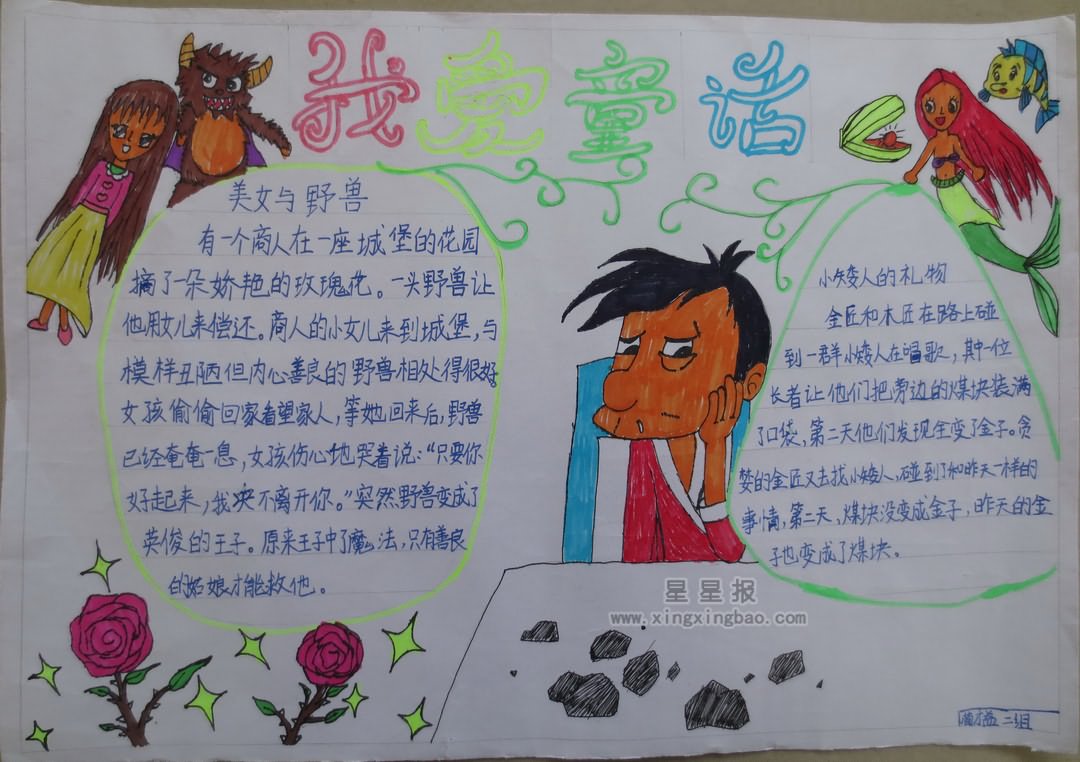 我爱童话
美女与野兽
有一个商人在一座城堡的花园
摘了一朵娇艳的玫瑰花。一头野兽让
他用女儿来偿还。商人的小女儿来到城堡,与
模样丑陋但内心善良的野兽相处得很好
女孩偷偷回家看望家人,等她回来后,野兽
已经奄奄一息,女孩伤心地哭着说:“只要你
好起来,我决不离开你。”突然野兽变成了
英俊的王子。原来王子中了魔法,只有善良
的姑娘才能救他。
小矮人的礼物
金匠和木匠在路上碰
到一群小矮人在唱歌,其中一位
长者让他们把旁边的煤块装满
了口袋,第二天他们发现全变了金子。贪
婪的金匠又去找小矮人,碰到了和昨天一样的
事情,第二天,煤块没变成金子,昨天的金
子也变成了煤块。
星星报
www.xingxingbao.com
二组